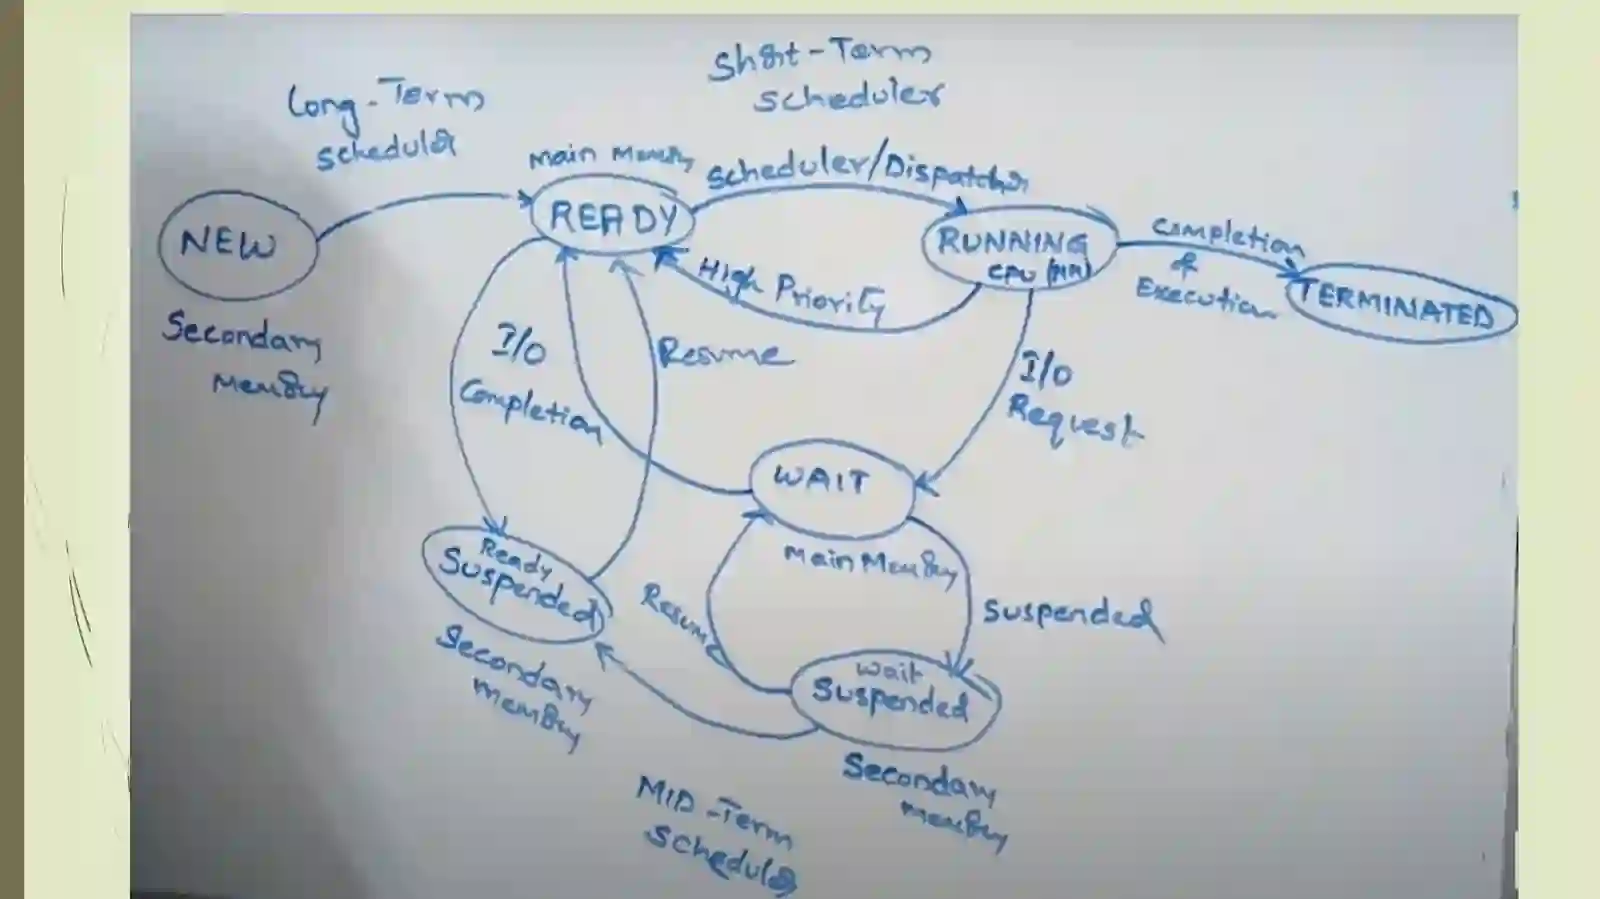 Short-Term
Scheduler
Long-Term
Scheduler
Main Memory
Scheduler/Dispatcher
NEW
READY
RUNNING
CPU (MM)
Completion
of
Execution
TERMINATED
High Priority
Secondary
Memory
I/O
Completion
Resume
I/O
Request
WAIT
Main Memory
Ready
Suspended
Secondary
Memory
Resume
Suspended
Wait
Suspended
Secondary
Memory
MID-Term
Scheduler